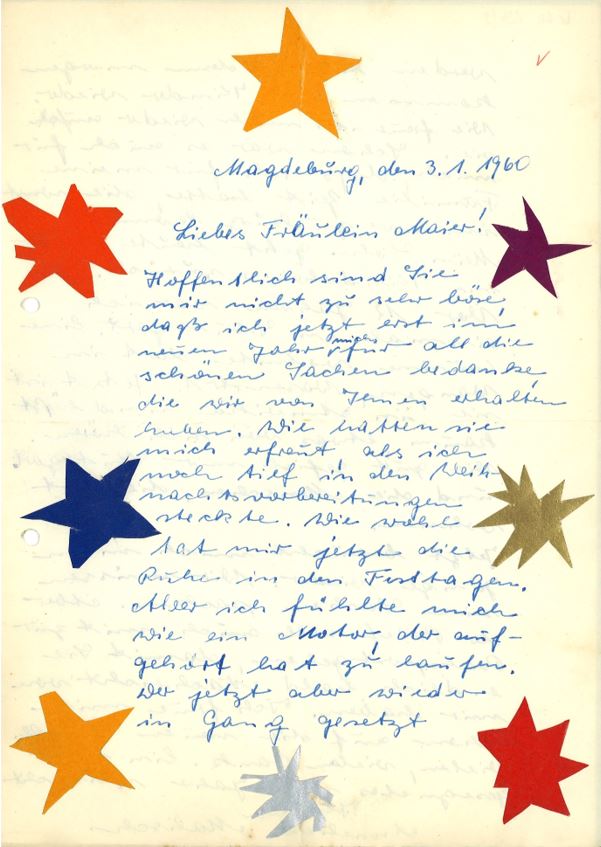 Magdeburg, den 3.1.1960
Liebes Fräulein Maier!
Hoffentlich sind Sie
mir nicht zu sehr böse,
daß ich jetzt erst im
mich
neuen Jahr für all die
schönen Sachen bedanke,
die wir von Ihnen erhalten
haben. Wie hatten sie
mich erfreut, als ich
noch tief in den Weih-
nachtsvorbereitungen
steckte. Wie wohl
tat mir jetzt die
Ruhe in den Festtagen.
Aber ich fühlte mich
wie ein Motor, der auf-
gehört hat zu laufen.
Der jetzt aber wieder
in Gang gesetzt